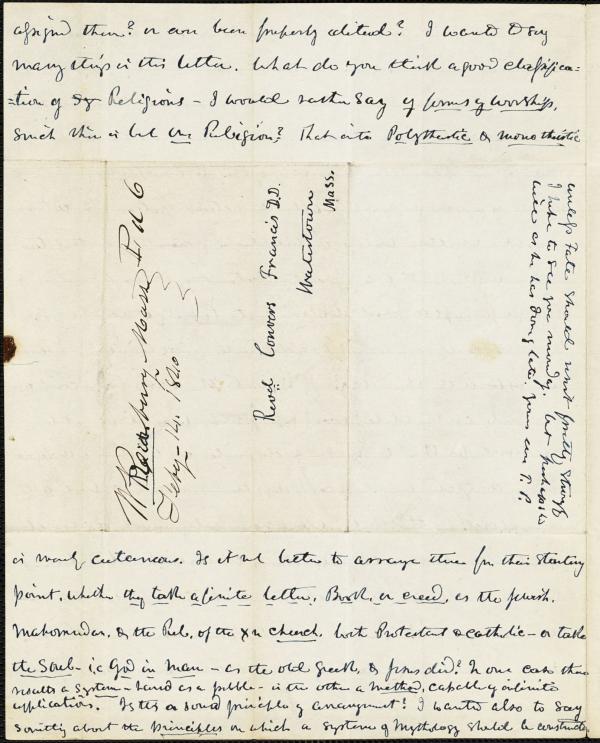 assigned them? or ever been properly edited? I wanted to say
many things in this letter. What do you think a good classifica=
=tion of Religions – I would rather say of forms of worship,
since there is but one Religion? That into Polytheistic & monotheistic
unless Fate should resist pretty strongly
I hope to see you monday, but perhaps
he has long
yours ever T. P.
Revd. Convers Francis D.D.
Watertown
Mass.
W Roxbury Mass
Feby – 14. 1840
6
is merely cutaneous. Is it not better to arrange them from their starting
point, whether they take a finite letter, Book, or creed, as the Jewish,
Mahomedan, & the Rel. of the Xn church, both Protestant & catholic – or take
the Soul – i.e God in Man – as the old Greek, & Jesus did? In one case there
results a System – hard as a pebble – in the other a Method, capable of infinite
application. Is this a sound principle of arrangement? I wanted also to say
something about the Principles on which a system of Mythology should be constructed